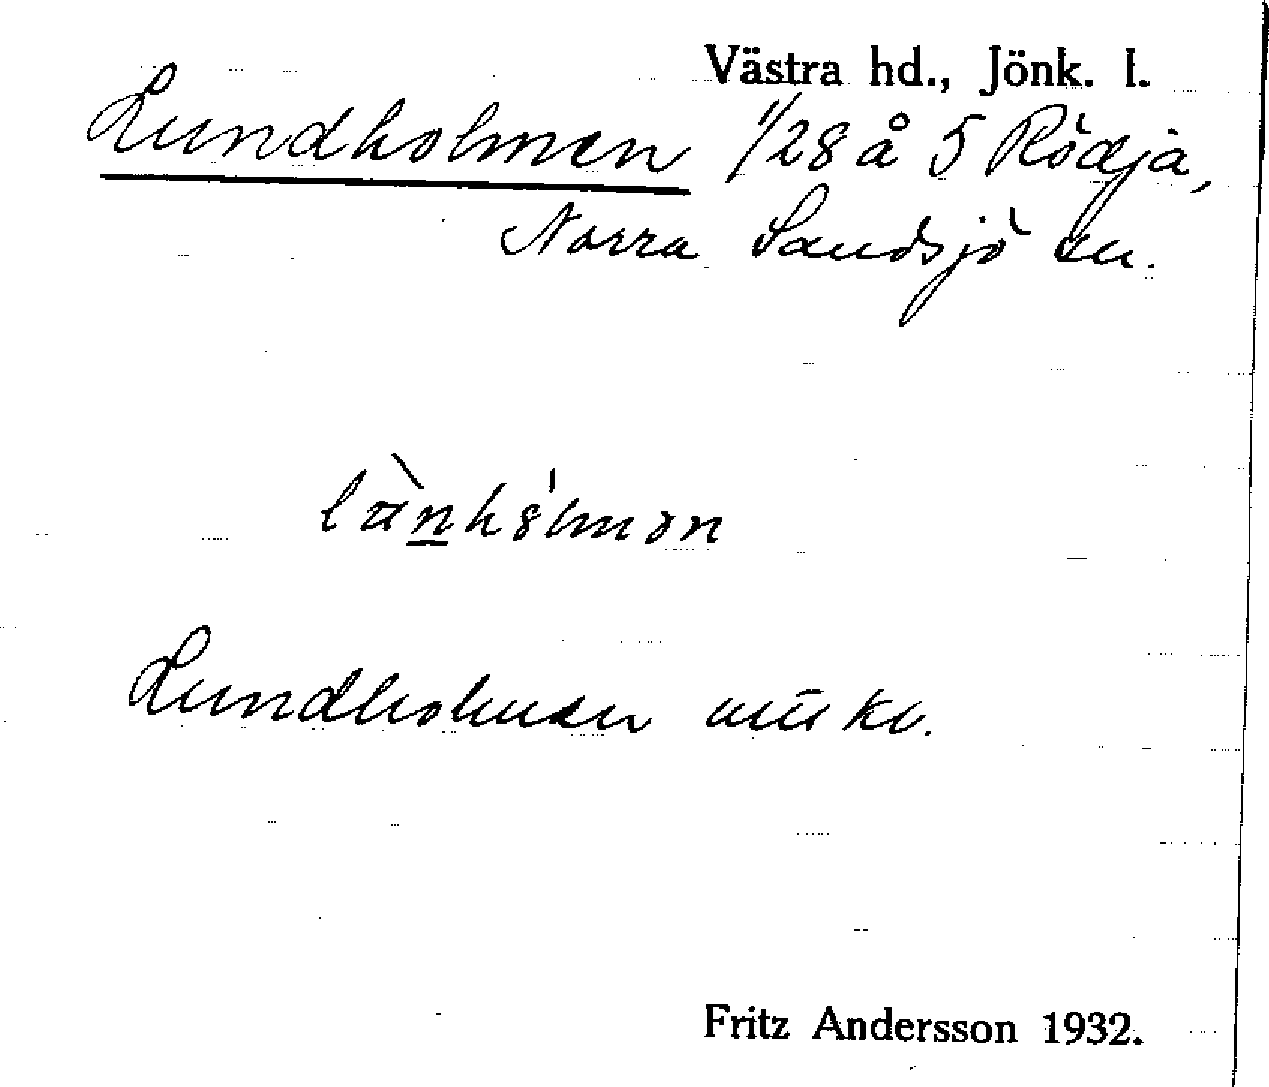 Västra hd., Jönk. l.
Lundholmen 1/28 å 5 Rödja,
Norra Sandsjö sn.
Lundholmen
Fritz Andersson 1932.